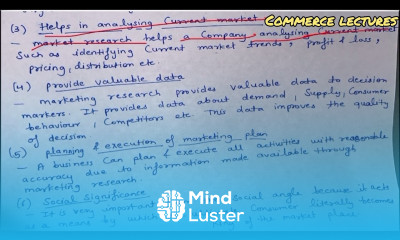 COMMERCE LECTURES
(3) Helps in analysing Current market
- market research helps a Company analysing Current market
Such as identifying Current market trends, profit & loss,
pricing, distribution etc.
(4) provide valuable data
- marketing research provides valuable data to decision
markers. It provides data about demand, Supply, Consumer
behaviour, Competitors etc. This data improves the quality
of decision.
(5) planning & execution of marketing plan
- A business Can plan & execute all activities with reasonable
accuracy due to information made available through
marketing research.
Social Significance
- It is very important social angle because it acts
as a means by which Consumer literally becomes
of the market place
Mind
Luster